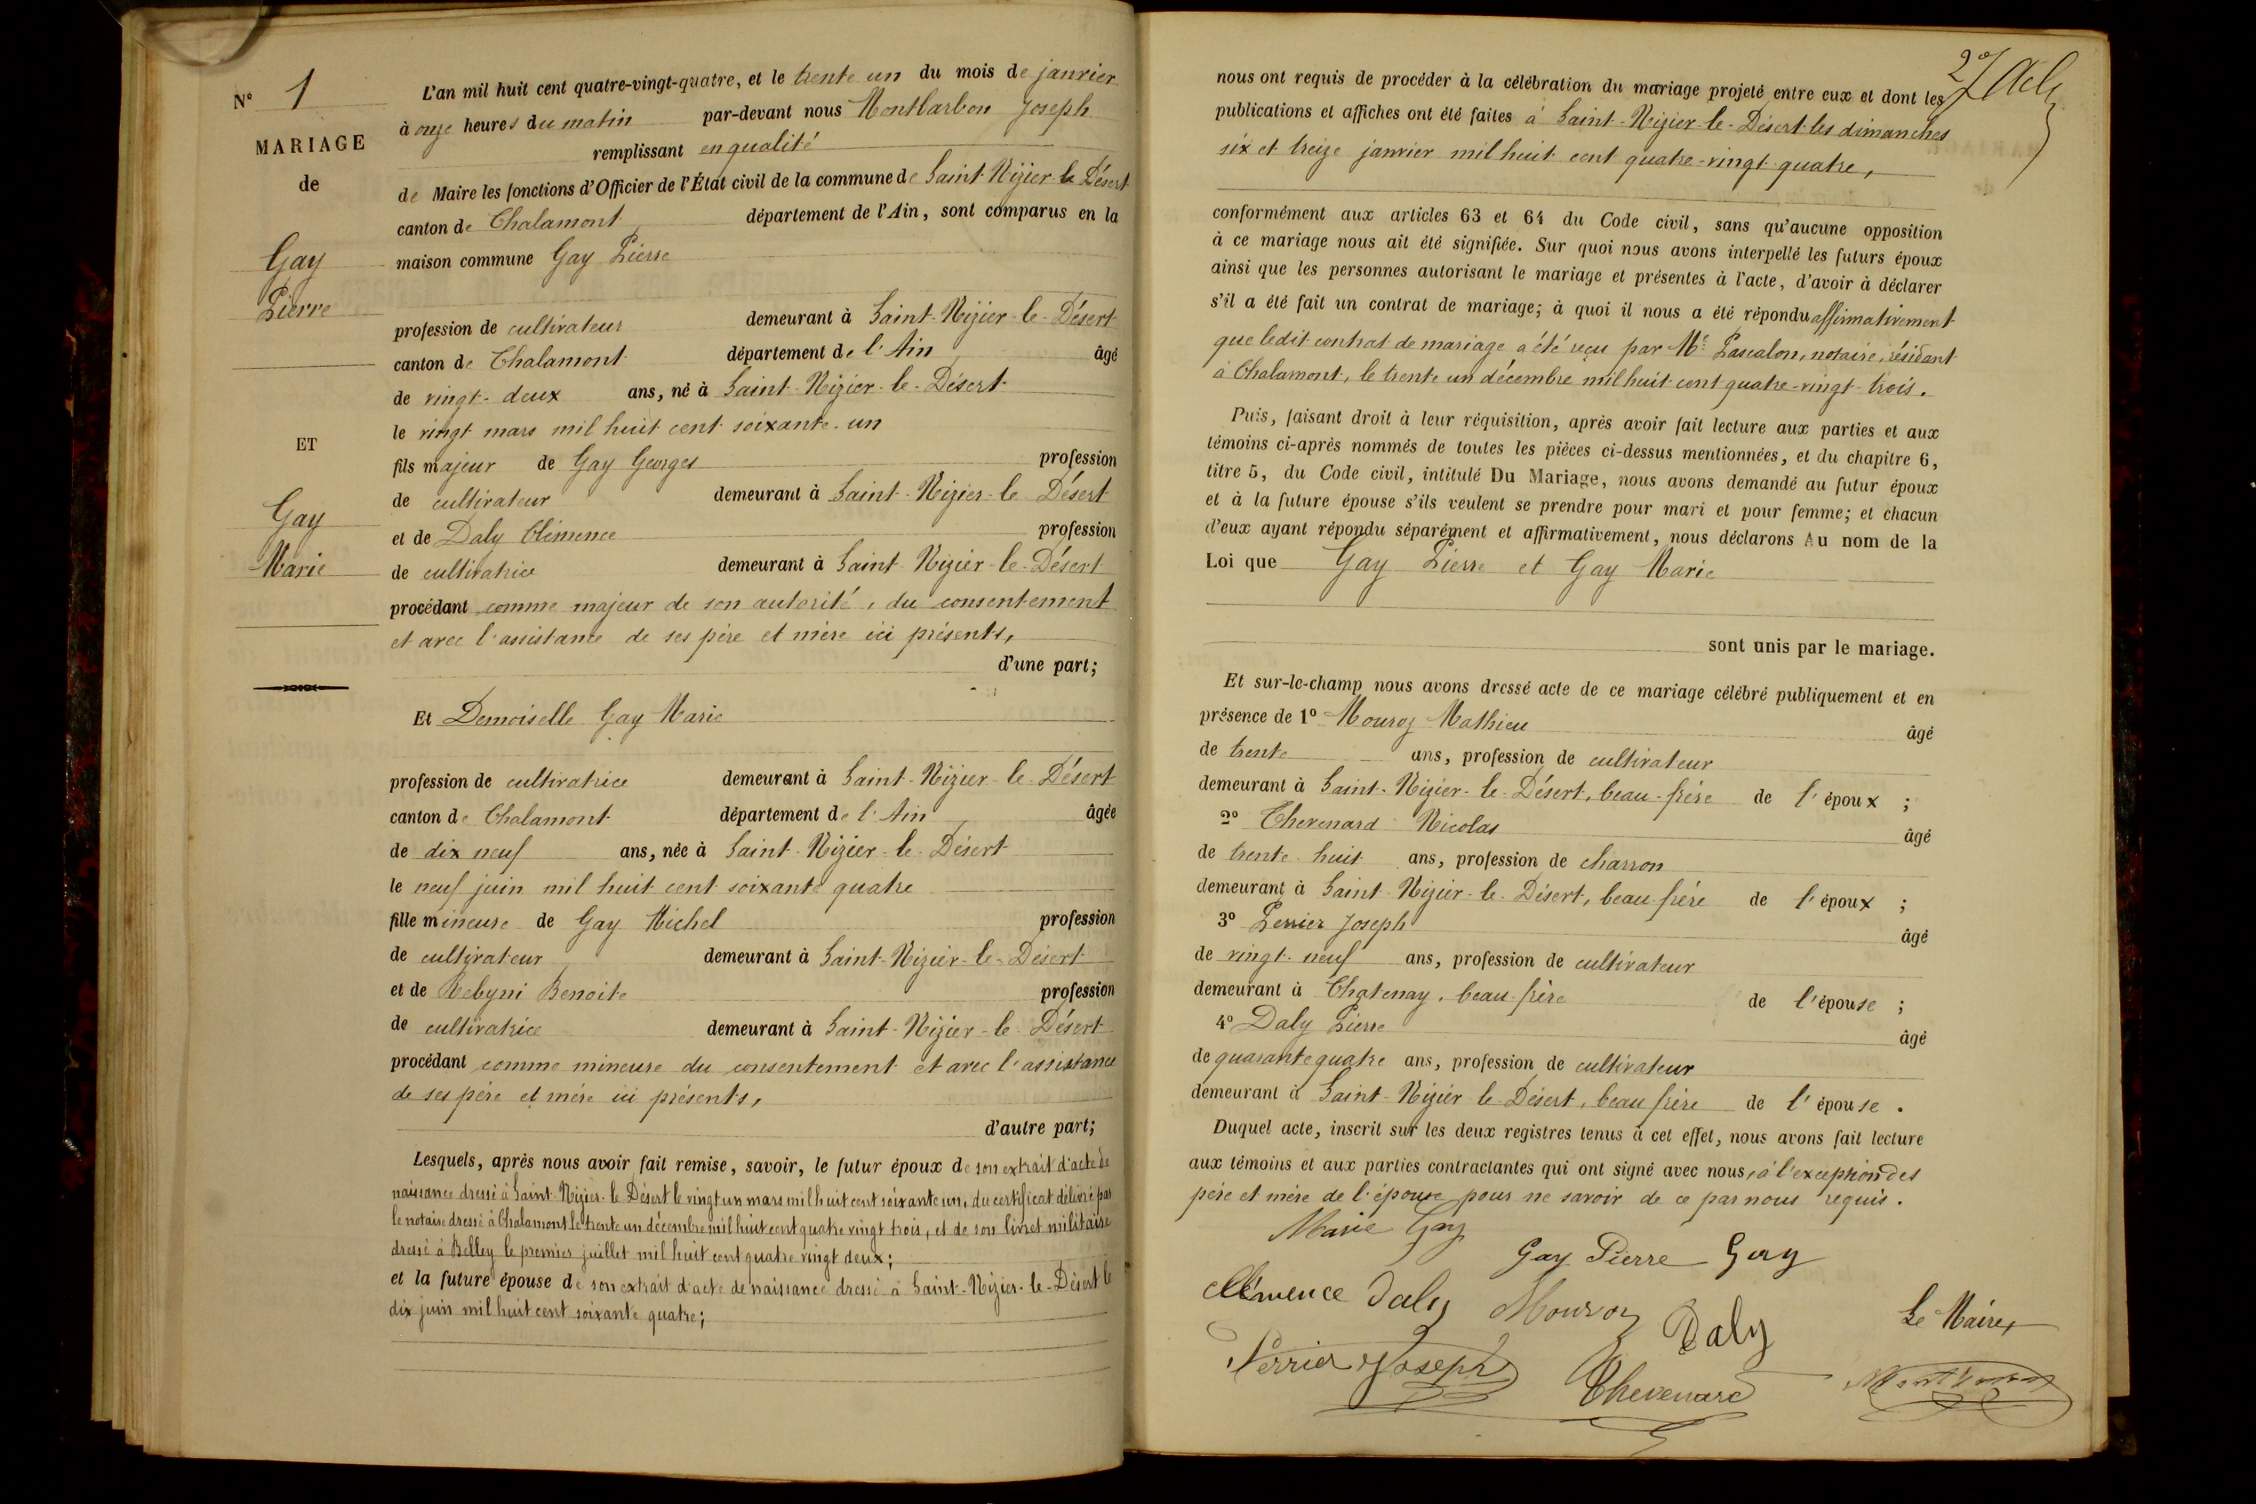 N° 1
MARIAGE
de
Gay
Pierre
ET
Gay
Marie
L'an mil huit cent quatre-vingt-quatre, et le trente un du mois de janvier
à onze heures du matin par-devant nous Montbarbon Joseph
remplissant en qualité
de Maire les fonctions d'Officier de l'État civil de la commune de Saint-Nizier-le Désert
canton de Chalamont département de l'Ain, sont comparus en la
maison commune Gay Pierre
profession de cultivateur demeurant à Saint-Nizier-le-Désert
canton de Chalamont département de l'Ain, âgé
de vingt-deux ans, né à Saint-Nizier-le-Désert
le vingt mars mil huit cent soixante-un
fils majeur de Gay Georges profession
de cultivateur demeurant à Saint-Nizier-le Désert
et de Daly Clémence profession
de cultivatrice demeurant à Saint-Nizier-le-Désert
procédant comme majeur de son autorité, du consentement
et avec l'assistance de ses père et mère ici présents,
d'une part;
Et Demoiselle Gay Marie
profession de cultivatrice demeurant à Saint-Nizier-le-Désert
canton de Chalamont département de l'Ain, âgée
de dix neuf ans, née à Saint-Nizier-le-Désert
le neuf juin mil huit cent soixante quatre
fille mineure de Gay Michel profession
de cultivateur demeurant à Saint-Nizier-le-Désert
et de Benoite profession
de cultivatrice demeurant à Saint-Nizier-le Désert
procédant comme mineure du consentement et avec l'assistance
de ses père et mère ici présents,
d'autre part;
Lesquels, après nous avoir fait remise, savoir, le futur époux de son extrait d'acte de
naissance dressé à Saint-Nizier-le Désert le vingt un mars mil huit cent soixante un, du certificat délivré par
le notaire dressé à Chalamont le trente un décembre mil huit cent quatre vingt trois, et de son livret militaire
dressé à Belley le premier juillet mil huit cent quatre vingt deux;
et la future épouse de son extrait d'acte de naissance dressé à Saint-Nizier-le-Désert le
dix juin mil huit cent soixante quatre;
nous ont requis de procéder à la célébration du mariage projeté entre eux et dont les
publications et affiches ont été faites à Saint-Nizier-le-Désert les dimanches
six et treize janvier mil huit cent quatre-vingt quatre,
conformément aux articles 63 et 64 du Code civil, sans qu'aucune opposition
à ce mariage nous ait été signifiée. Sur quoi nous avons interpellé les futurs époux
ainsi que les personnes autorisant le mariage et présentes à l'acte, d'avoir à déclarer
s'il a été fait un contrat de mariage; à quoi il nous a été répondu affirmativement
que ledit contrat de mariage a été reçu par Me Pascalon, notaire, résidant
à Chalamont, le trente un décembre mil huit cent quatre-vingt-trois.
Puis, faisant droit à leur réquisition, après avoir fait lecture aux parties et aux
témoins ci-après nommés de toutes les pièces ci-dessus mentionnées, et du chapitre 6,
titre 5, du Code civil, intitulé Du Mariage, nous avons demandé au futur époux
et à la future épouse s'ils veulent se prendre pour mari et pour femme; et chacun
d'eux ayant répondu séparément et affirmativement, nous déclarons Au nom de la
Loi que Gay Pierre et Gay Marie
sont unis par le mariage.
Et sur-le-champ nous avons dressé acte de ce mariage célébré publiquement et en
présence de 1° Mouroz Mathieu âgé
de trente ans, profession de cultivateur
demeurant à Saint-Nizier-le-Désert, beau-frère de l'époux ;
2° Thevenard Nicolas âgé
de trente huit ans, profession de charron
demeurant à Saint-Nizier-le-Désert, beau frère de l'époux ;
3° Perrier Joseph âgé
de vingt-neuf ans, profession de cultivateur
demeurant à Chatenay, beau-frère de l'épouse ;
4° Daly Pierre âgé
de quarante quatre ans, profession de cultivateur
demeurant à Saint-Nizier le-Désert, beau frère de l'épouse .
Duquel acte, inscrit sur les deux registres tenus à cet effet, nous avons fait lecture
aux témoins et aux parties contractantes qui ont signé avec nous, à l'exception des
père et mère de l'épouse pour ne savoir de ce par nous requis.
Marie Gay
Gay Pierre Gay
Clémence Daly Mouroz Daly
Le Maire,
Perrier Joseph Thevenard